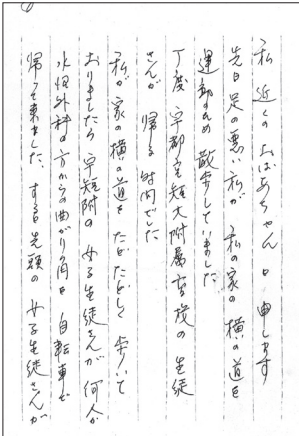 私 近くの おばあちゃん と 申します
先日 足の悪い私が 私の家の 横の道を
運動のため 散歩していました
丁度 宇都宮短大附属高校の生徒
さんが 帰る時間でした
私が 家の横の道を たどたどしく 歩いて
おりましたら 宇短附の 女子生徒さんが 何人か
外科の方からの曲がり角を 自転車で
帰って来ました、する先頭の 女子生徒さんが